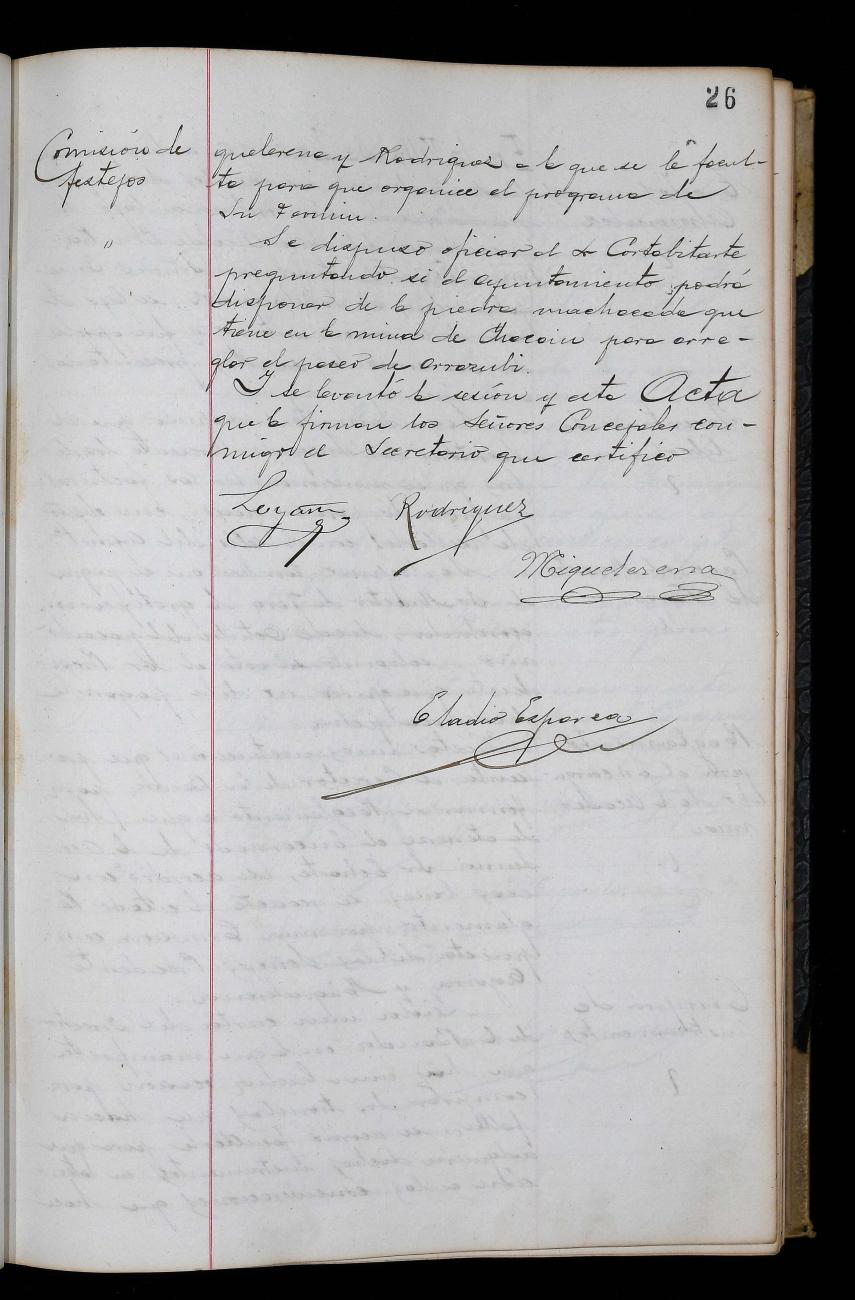 26
Comisión de
festejos
"
quelerena y Rodriguez a la que se le facul-
ta para que organice el programa de
Sn Fermin.
Se dispuso oficiar al Sr Cortabitarte
preguntando si el Ayuntamiento podrá
disponer de la piedra machacada que
tiene en la mina de Chacoin para arre-
glar el paseo de Arrazubi.
Y se levantó la sesión y esta Acta
que la firman los Señores Concejales con-
migo el Secretario que certifico
Rodriguez
Miquelerena
Eladio Esparza